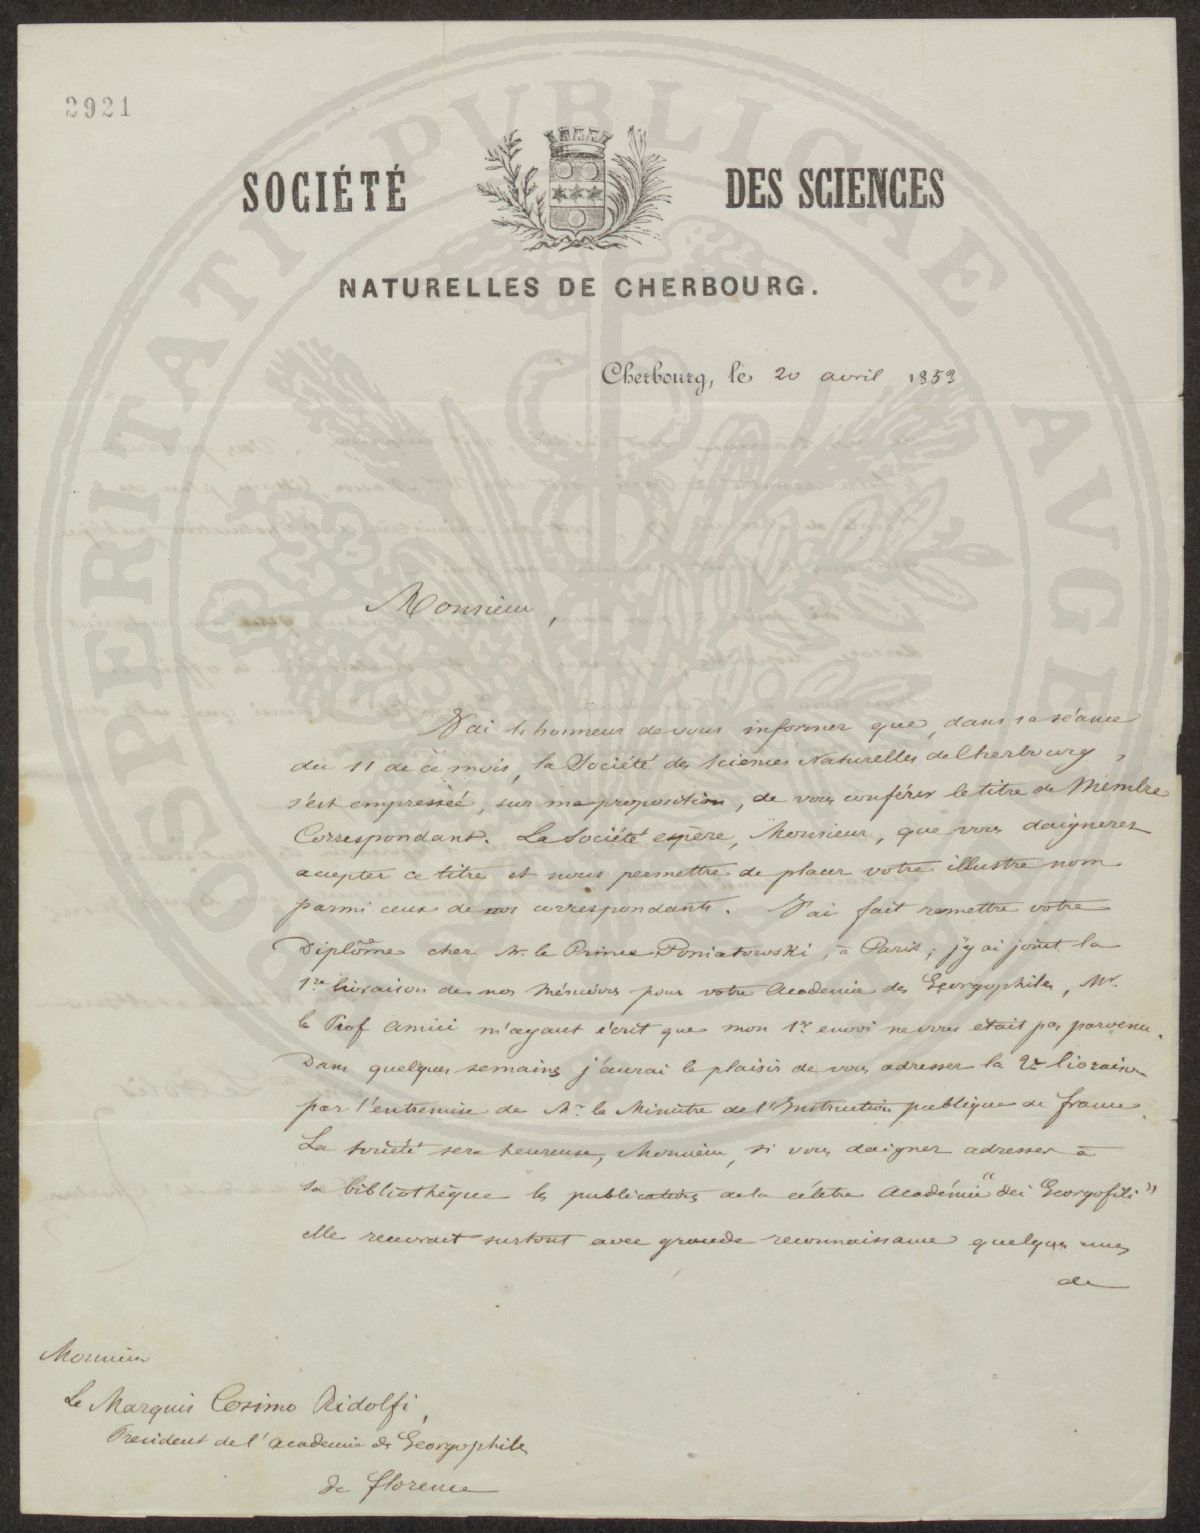 2921
SOCIÉTÉ DES SCIENCES
NATURELLES DE CHERBOURG.
Cherbourg, le 20 avril 1853
Monsieur,
J'ai l'honneur de vous informer que, dans sa séance
du 11 de ce mois, la Société des Sciences Naturelles de Cherbourg,
s'est empressée, sur ma proposition, de vous conférer le titre de Membre
Correspondant. La Société espère, Monsieur, que vous daignerez
accepter ce titre et nous permettre de placer votre illustre nom
parmi ceux de nos correspondants. J'ai fait remettre votre
Diplôme chez Mr. le Prince Poniatowski, à Paris; j'y ai joint la
1re livraison de nos Mémoires pour votre Académie des Georgophiles, Mr.
le Prof Amici m'ayant écrit que mon 1er envoi ne vous était pas parvenu.
Dans quelques semaines j'aurai le plaisir de vous adresser la 2e livraison
par l'entremise de Mr. le Ministre de l'Instruction publique de france.
La société sera heureuse, Monsieur, si vous daignez adresser à
sa bibliothèque les publications de la célèbre Académie "dei Georgofili"
elle recevrait surtout avec grande reconnaissance quelques unes
de
Monsieur
Le Marquis Cosimo Ridolfi,
President de l'academie des Georgophiles
de florence
PROSPERITATI PUBLICAE AVGENDAE